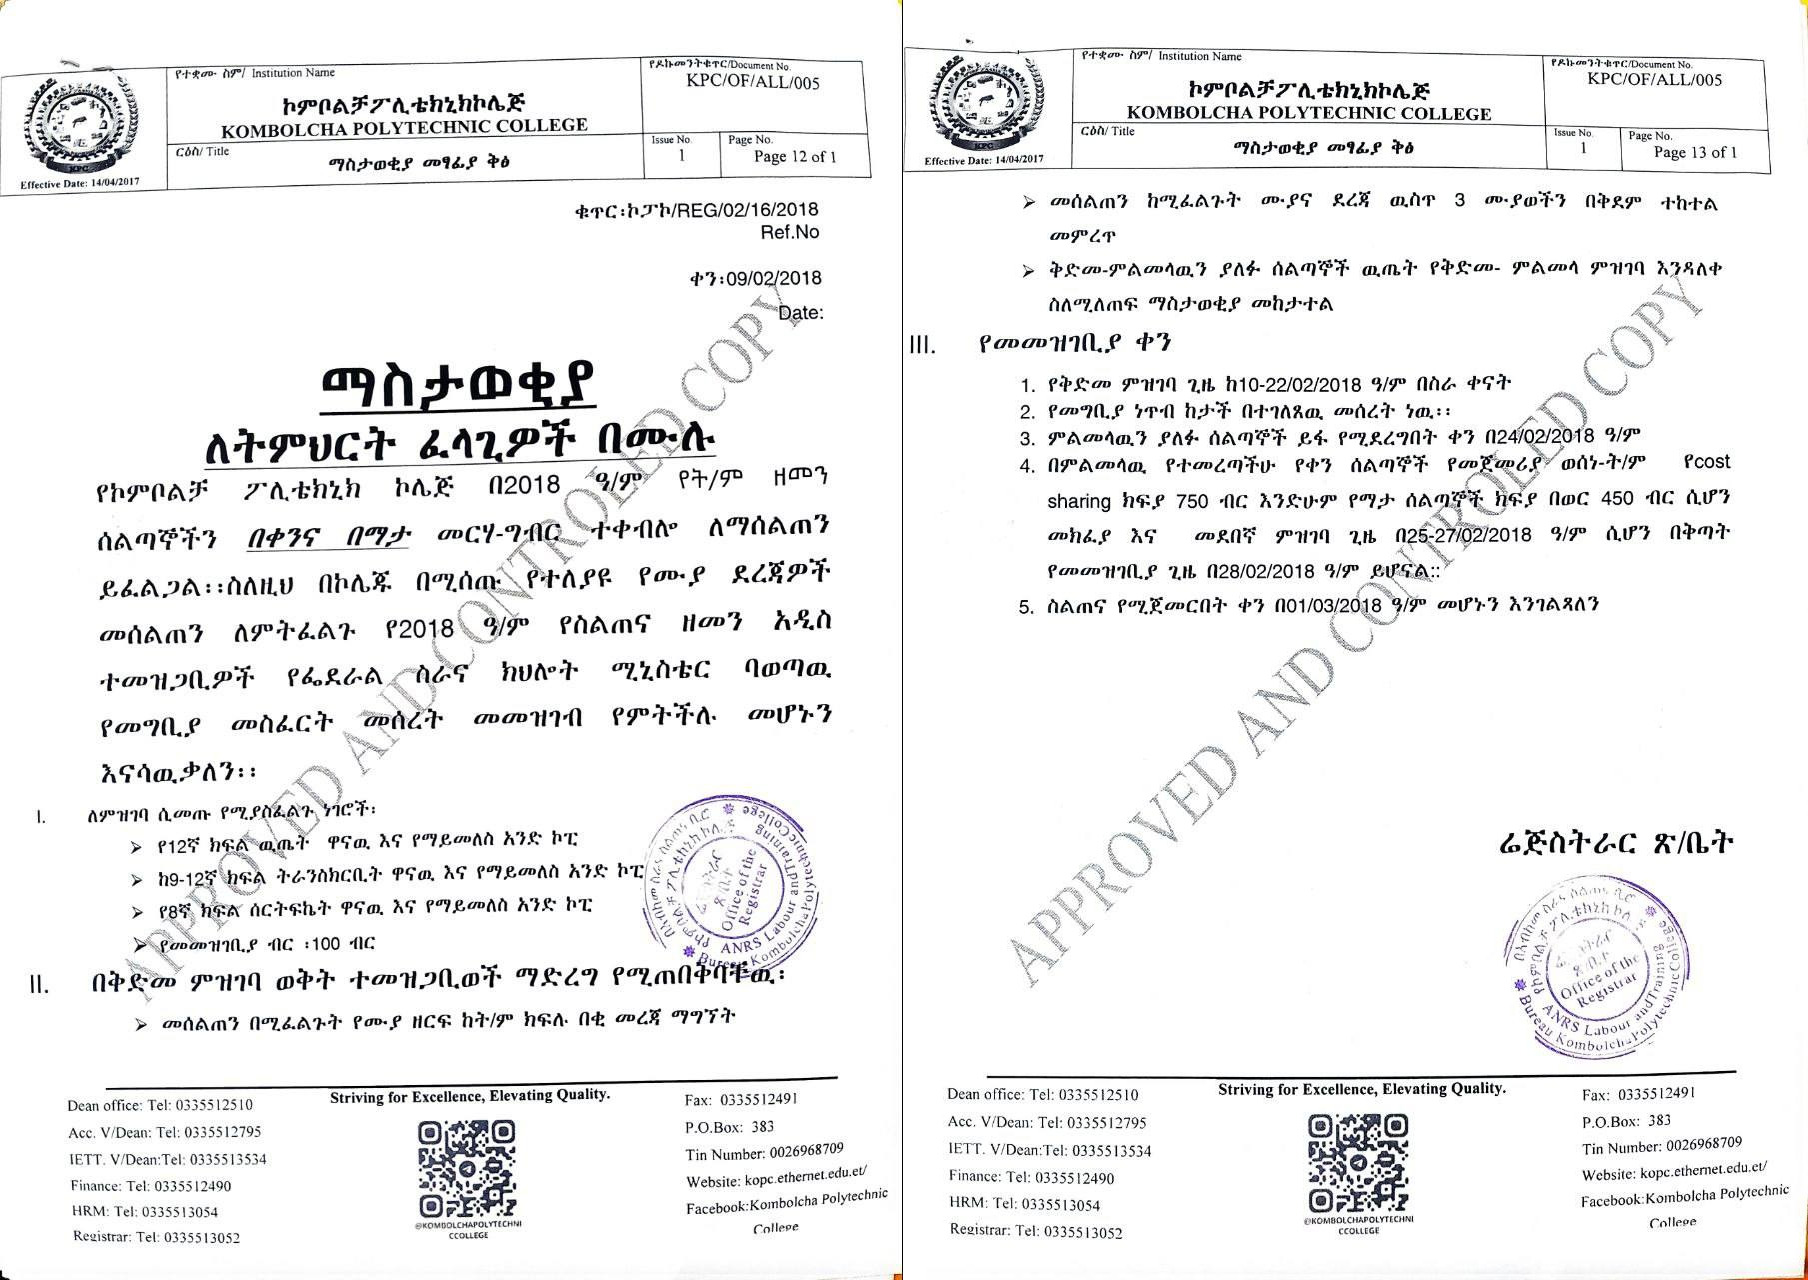 የተቋሙ ስም/ Institution Name
ኮምቦልቻፖሊቴክኒክኮሌጅ
KOMBOLCHA POLYTECHNIC COLLEGE
የዶኩመንትቁጥር/Document No.
KPC/OF/ALL/005
ርዕስ/ Title
ማስታወቂያ መፃፊያ ቅፅ
Issue No.
1
Page No.
Page 12 of 1
KPC
Effective Date: 14/04/2017
ቁጥር፡ኮፖኮ/REG/02/16/2018
Ref.No
ቀን፡09/02/2018
Date:
ማስታወቂያ
ለትምህርት ፈላጊዎች በሙሉ
የኮምቦልቻ ፖሊቴክኒክ ኮሌጅ በ2018 ዓ/ም የት/ም ዘመን
ሰልጣኞችን በቀንና በማታ መርሃ-ግብር ተቀብሎ ለማሰልጠን
ይፈልጋል፡፡ስለዚህ በኮሌጁ በሚሰጡ የተለያዩ የሙያ ደረጃዎች
መሰልጠን ለምትፈልጉ የ2018 ዓ/ም የስልጠና ዘመን አዲስ
ተመዝጋቢዎች የፌደራል ስራና ክህሎት ሚኒስቴር ባወጣዉ
የመግቢያ መስፈርት መሰረት መመዝገብ የምትችሉ መሆኑን
እናሳዉቃለን፡፡
I. ለምዝገባ ሲመጡ የሚያስፈልጉ ነገሮች፡
➢ የ12ኛ ክፍል ዉጤት ዋናዉ እና የማይመለስ አንድ ኮፒ
➢ ከ9-12ኛ ክፍል ትራንስክርቢት ዋናዉ እና የማይመለስ አንድ ኮፒ
➢ የ8ኛ ክፍል ሰርትፍኬት ዋናዉ እና የማይመለስ አንድ ኮፒ
➢ የመመዝገቢያ ብር ፡100 ብር
II. በቅድመ ምዝገባ ወቅት ተመዝጋቢወች ማድረግ የሚጠበቅባቸዉ፡
➢ መሰልጠን በሚፈልጉት የሙያ ዘርፍ ከት/ም ክፍሉ በቂ መረጃ ማግኘት
APPROVED AND CONTROLED COPY
Office of the
Registrar
ANRS Labour andTraining
Bureau KombolchaPolytechnicCollege
Striving for Excellence, Elevating Quality.
Dean office: Tel: 0335512510
Acc. V/Dean: Tel: 0335512795
IETT. V/Dean:Tel: 0335513534
Finance: Tel: 0335512490
HRM: Tel: 0335513054
Registrar: Tel: 0335513052
@KOMBOLCHAPOLYTECHNI
CCOLLEGE
Fax: 0335512491
P.O.Box: 383
Tin Number: 0026968709
Website: kopc.ethernet.edu.et/
Facebook:Kombolcha Polytechnic
College
የተቋሙ ስም/ Institution Name
ኮምቦልቻፖሊቴክኒክኮሌጅ
KOMBOLCHA POLYTECHNIC COLLEGE
የዶኩመንትቁጥር/Document No.
KPC/OF/ALL/005
ርዕስ/ Title
ማስታወቂያ መፃፊያ ቅፅ
Issue No.
1
Page No.
Page 13 of 1
KPC
Effective Date: 14/04/2017
➢ መሰልጠን ከሚፈልጉት ሙያና ደረጃ ዉስጥ 3 ሙያወችን በቅደም ተከተል
መምረጥ
➢ ቅድመ-ምልመላዉን ያለፉ ሰልጣኞች ዉጤት የቅድመ- ምልመላ ምዝገባ እንዳለቀ
ስለሚለጠፍ ማስታወቂያ መከታተል
III. የመመዝገቢያ ቀን
1. የቅድመ ምዝገባ ጊዜ ከ10-22/02/2018 ዓ/ም በስራ ቀናት
2. የመግቢያ ነጥብ ከታች በተገለጸዉ መሰረት ነዉ፡፡
3. ምልመላዉን ያለፉ ሰልጣኞች ይፋ የሚደረግበት ቀን በ24/02/2018 ዓ/ም
4. በምልመላዉ የተመረጣችሁ የቀን ሰልጣኞች የመጀመሪያ ወሰነ-ት/ም የcost
sharing ክፍያ 750 ብር እንድሁም የማታ ሰልጣኞች ክፍያ በወር 450 ብር ሲሆን
መክፈያ እና መደበኛ ምዝገባ ጊዜ በ25-27/02/2018 ዓ/ም ሲሆን በቅጣት
የመመዝገቢያ ጊዜ በ28/02/2018 ዓ/ም ይሆናል፡፡
5. ስልጠና የሚጀመርበት ቀን በ01/03/2018 ዓ/ም መሆኑን እንገልጻለን
APPROVED AND CONTROLED COPY
ሬጅስትራር ጽ/ቤት
Office of the
Registrar
ANRS Labour andTraining
Bureau KombolchaPolytechnicCollege
Striving for Excellence, Elevating Quality.
Dean office: Tel: 0335512510
Acc. V/Dean: Tel: 0335512795
IETT. V/Dean:Tel: 0335513534
Finance: Tel: 0335512490
HRM: Tel: 0335513054
Registrar: Tel: 0335513052
@KOMBOLCHAPOLYTECHNI
CCOLLEGE
Fax: 0335512491
P.O.Box: 383
Tin Number: 0026968709
Website: kopc.ethernet.edu.et/
Facebook:Kombolcha Polytechnic
College